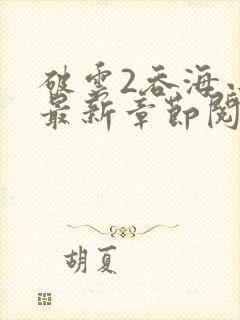 破雲2吞海
最新章節閱
胡夏